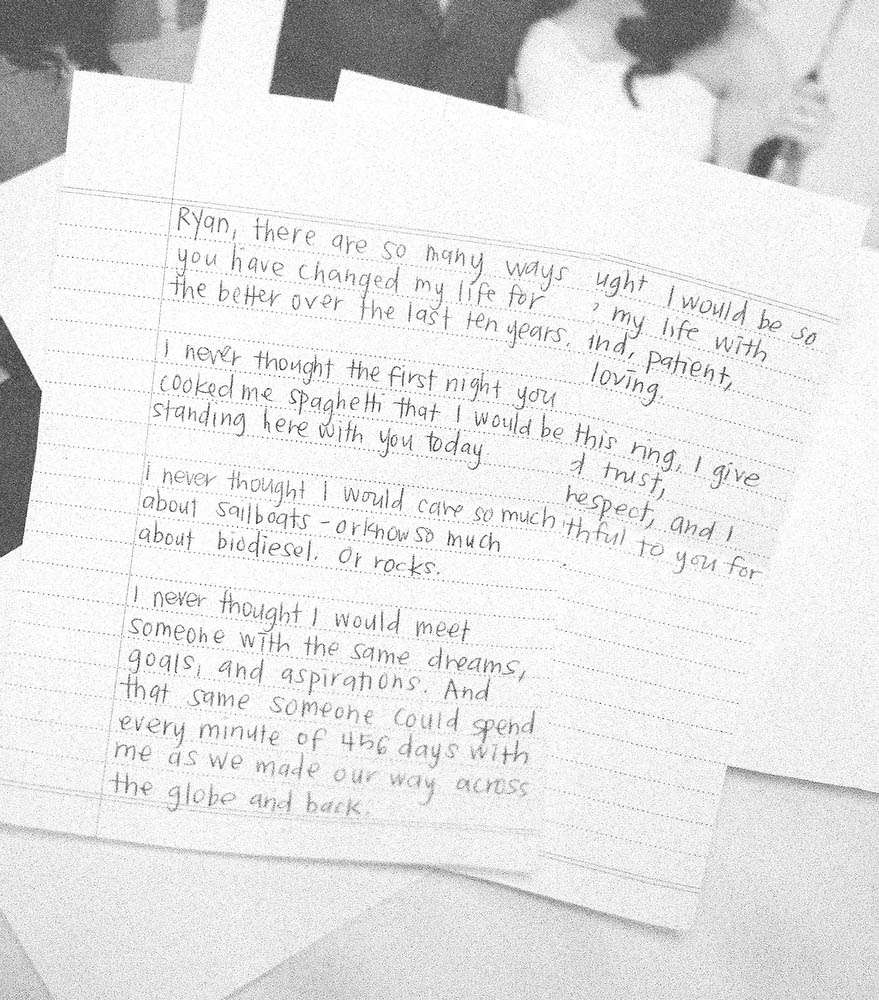 Ryan, there are so many ways
you have changed my life for
the better over the last ten years.
I never thought the first night you
cooked me spaghetti that I would be
standing here with you today
I never thought I would care so much
about sailboats - or know so much
about biodiesel. Or rocks.
I never thought I would meet
someone with the same dreams,
goals, and aspirations. And
that same someone could spend
every minute of 456 days with
me as we made our way across
the globe and back.
ught I would be so
, my life with
ind, patient,
loving.
this ring, I give
d trust,
respect, and I
thful to you for